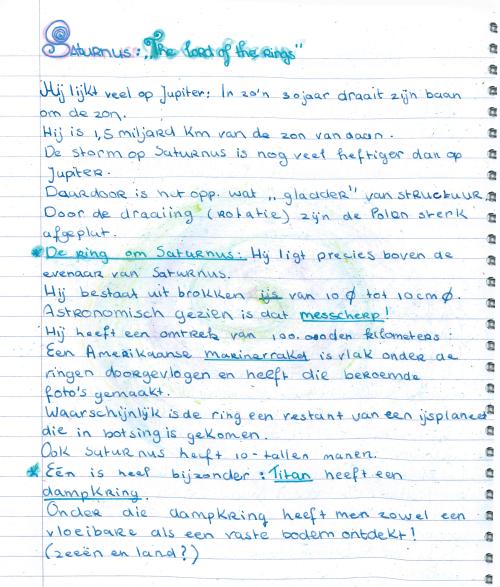 Saturnus: „The Lord of the rings"
Hij lijkt veel op Jupiter: In zo'n 30 jaar draait zijn baan
om de zon.
Hij is 1,5 miljard km van de zon vandaan.
De storm op Saturnus is nog veel heftiger dan op
Jupiter.
Daardoor is het opp. wat „gladder" van structuur.
Door de draaiing (rotatie) zijn de Polen sterk
afgeplat.
De ring om Saturnus: Hij ligt precies boven de
evenaar van Saturnus.
Hij bestaat uit brokken ijs van 10 ø tot 10 cm ø.
Astronomisch gezien is dat messcherp!
Hij heeft een omtrek van 100.000den kilometers:
Een Amerikaanse marinerraket is vlak onder de
ringen doorgevlogen en heeft die beroemde
foto's gemaakt.
Waarschijnlijk is de ring een restant van een ijsplaneet
die in botsing is gekomen.
Ook Saturnus heeft 10-tallen manen.
Eén is heel bijzonder: Titan heeft een
dampkring.
Onder die dampkring heeft men zowel een
vloeibare als een vaste bodem ontdekt!
(zeeën en land?)